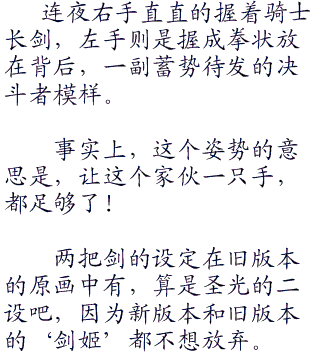 连夜右手直直的握着骑士
长剑，左手则是握成拳状放
在背后，一副蓄势待发的决
斗者模样。
事实上，这个姿势的意
思是，让这个家伙一只手，
都足够了！
两把剑的设定在旧版本
的原画中有，算是圣光的二
设吧，因为新版本和旧版本
的‘剑姬’都不想放弃。